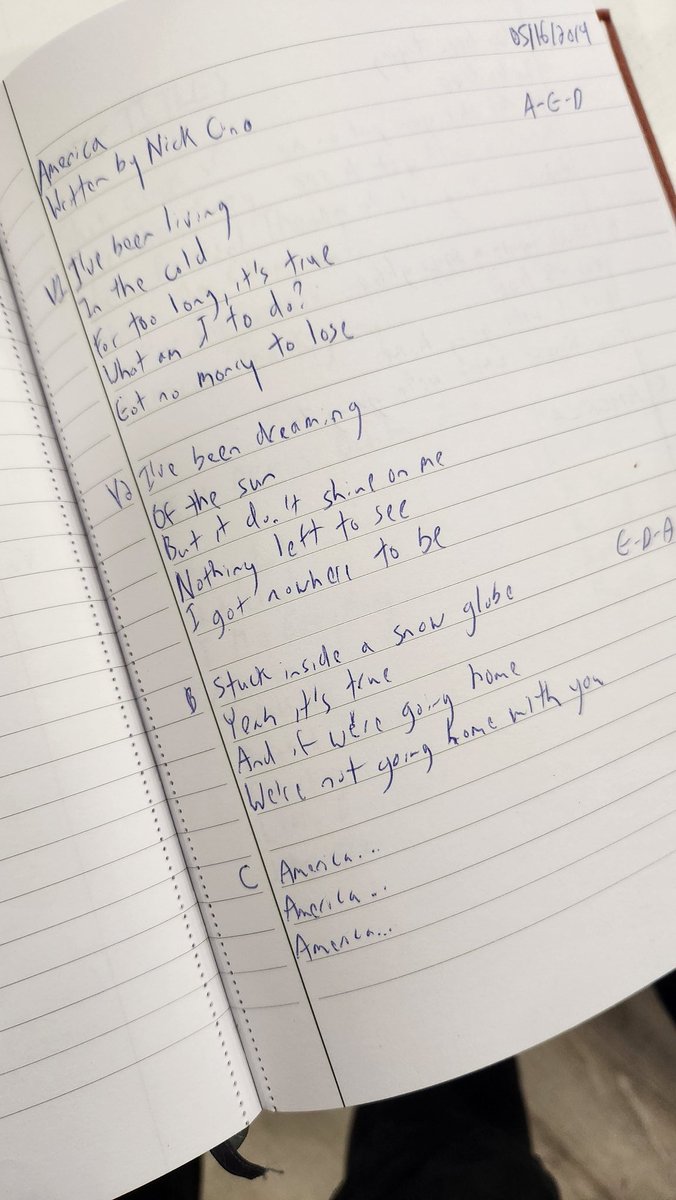 05/16/2019
A-E-D
America
Written by Nick Cino
V1 I've been living
In the cold
For too long, it's true
What am I to do?
Got no money to lose
V2 I've been dreaming
Of the sun
But it don't shine on me
Nothing left to see
I got nowhere to be
E-D-A
B Stuck inside a snow globe
Yeah it's true
And if we're going home
We're not going home with you
C America...
America...
America...